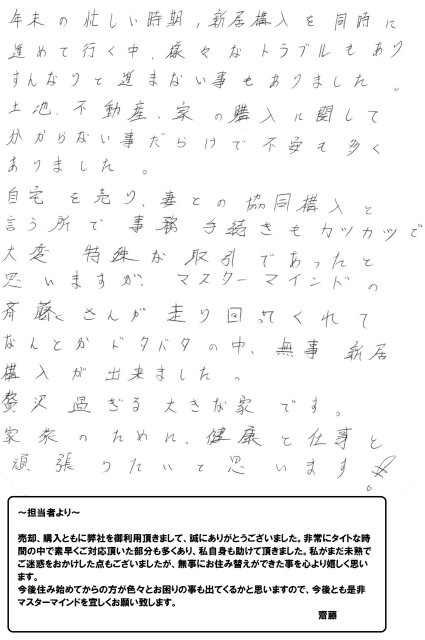 年末の忙しい時期，新居構入を同時に
進めて行く中、様々なトラブルもあり
すんなりと進まない事もありました。
土地、不動産、家の購入に関して
分からない事だらけで不安も多く
ありました。
自宅を売り、妻との協同構入と
言う所で事務手続きもカツカツで
大変特殊な取引であったと
思いますが、マスターマインドの
斉藤くさんが走り回ってくれて
なんとかドタバタの中、無事新居
構入が出来ました。
贅沢過ぎる大きな家です。
家族のために、健康と仕事と
頑張りたいと思います
～担当者より～
売却、購入ともに弊社を御利用頂きまして、誠にありがとうございました。非常にタイトな時
間の中で素早くご対応頂いた部分も多くあり、私自身も助けて頂きました。私がまだ未熟で
ご迷惑をおかけした点もございましたが、無事にお住み替えができた事を心より嬉しく思い
ます。
今後住み始めてからの方が色々とお困りの事も出てくるかと思いますので、今後とも是非
マスターマインドを宜しくお願い致します。
齋藤